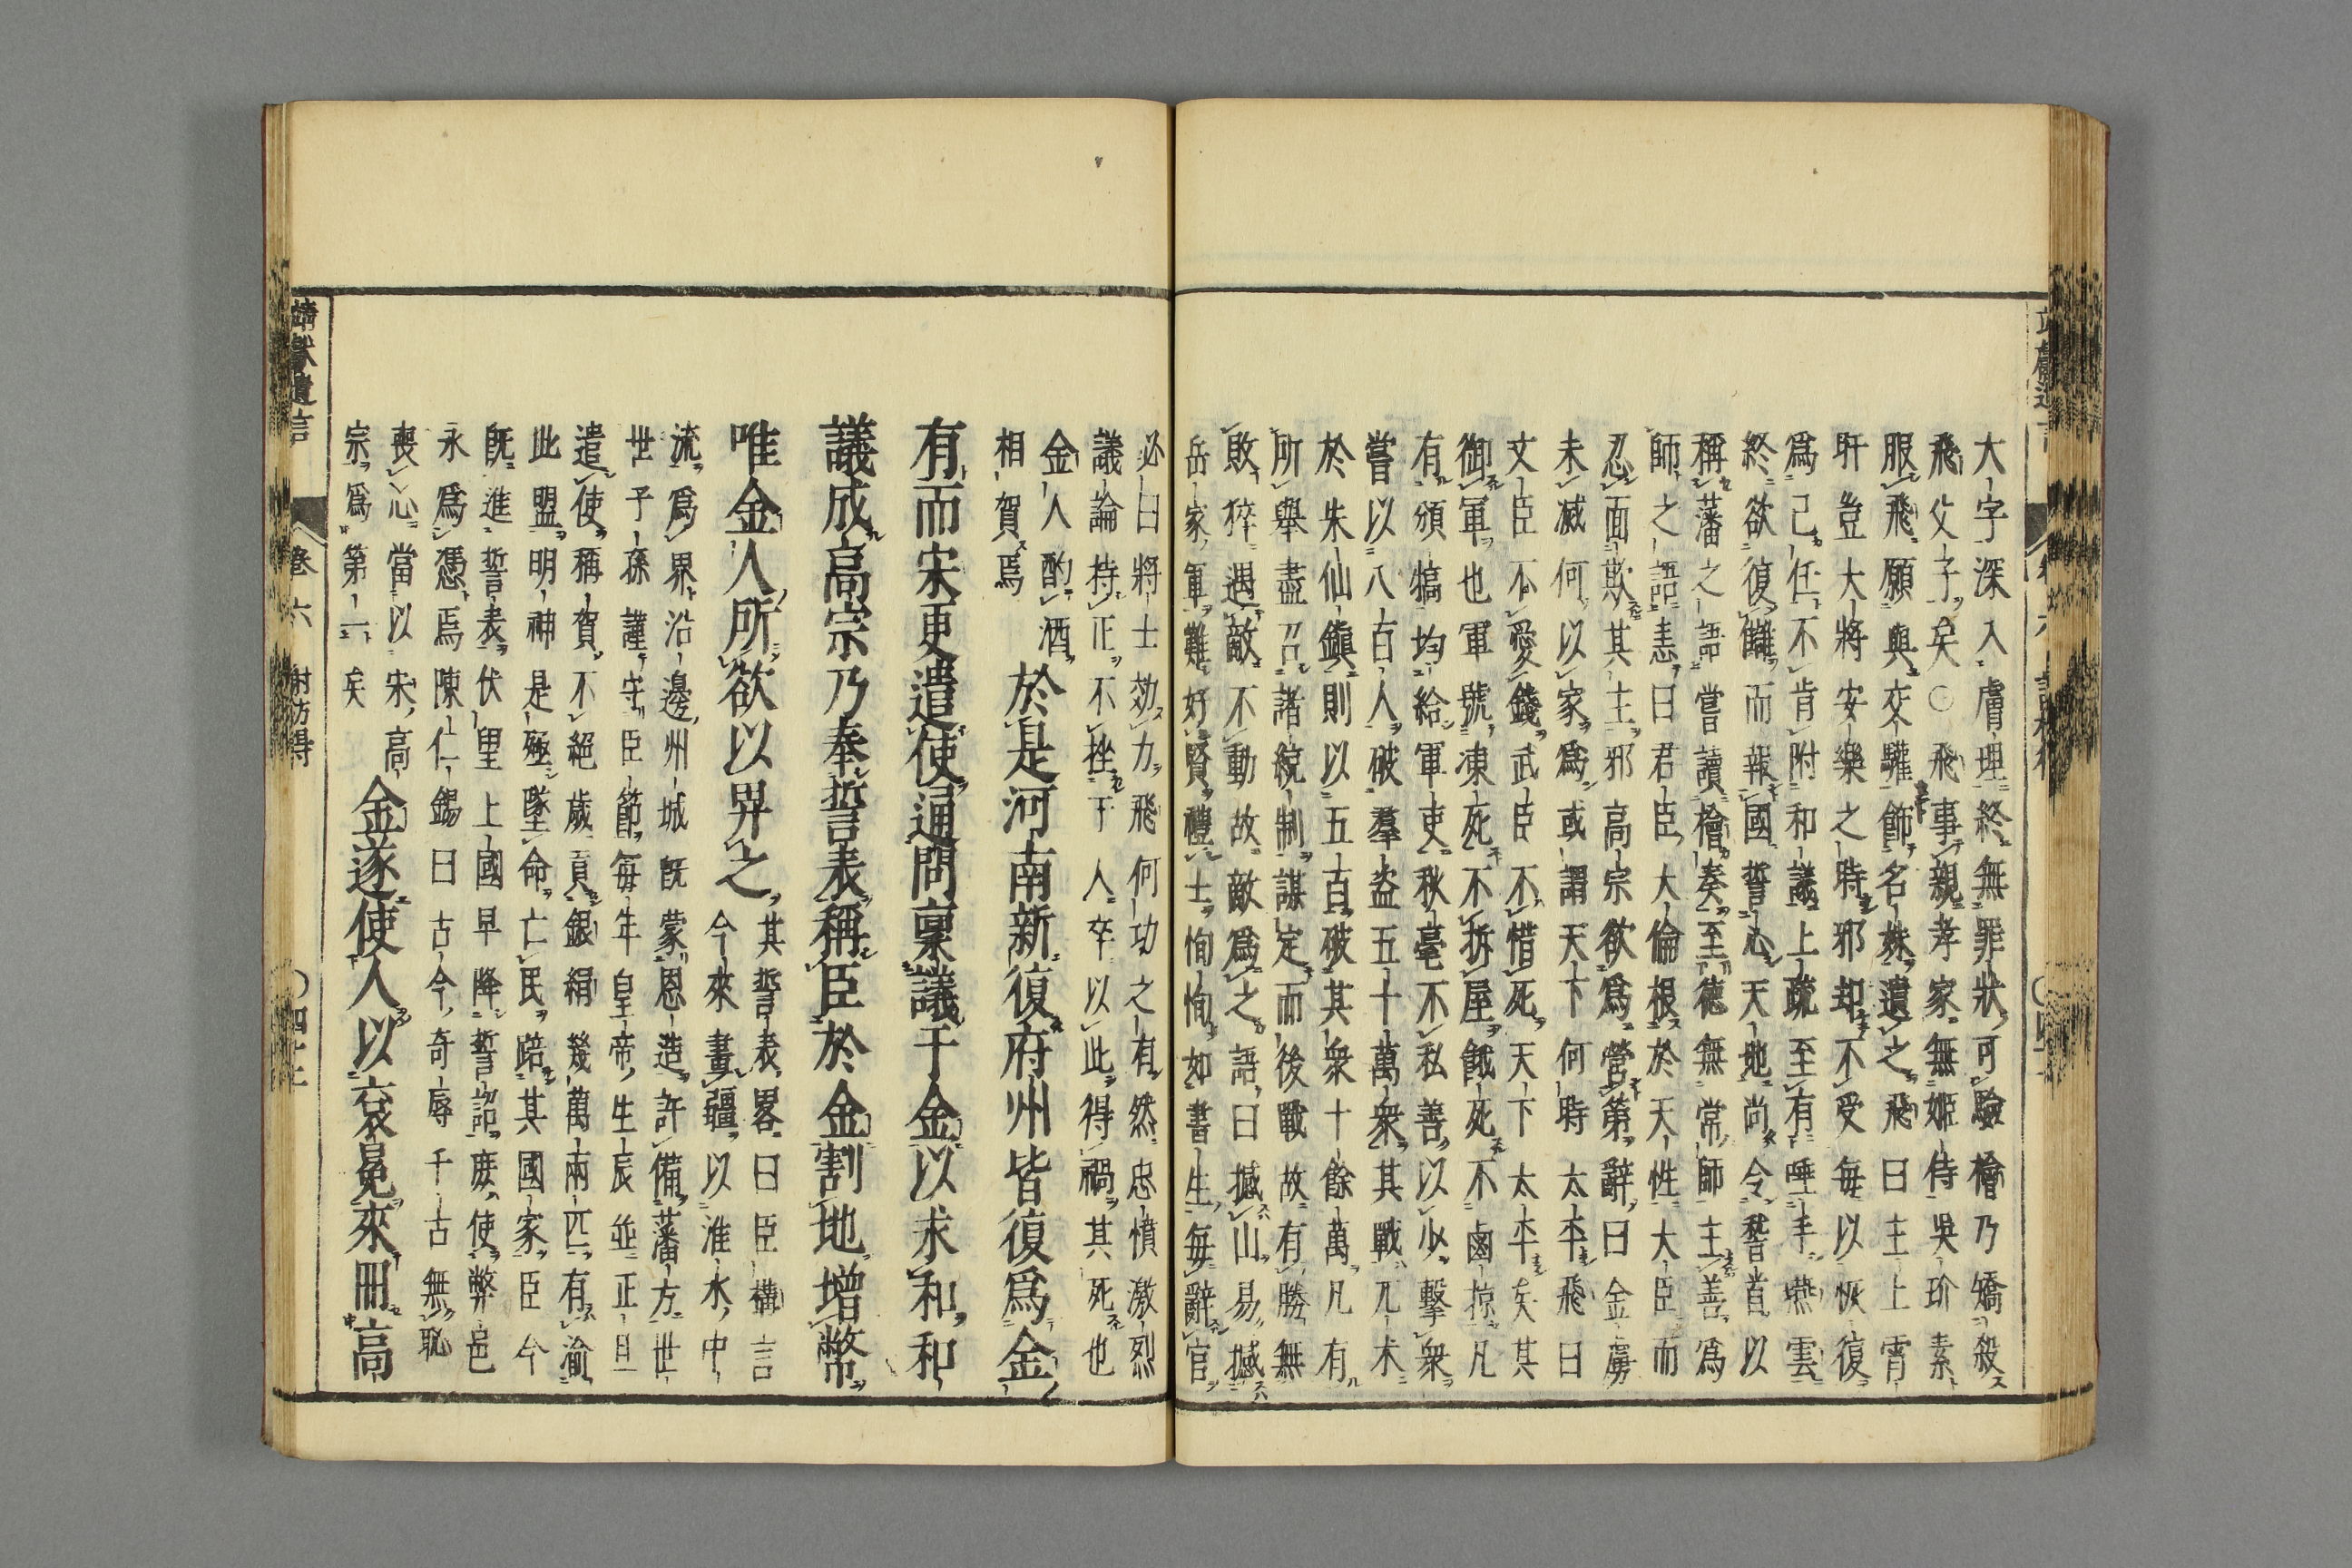 大字深入膚理終無罪狀可驗檜乃矯殺
飛父子矣○飛事親孝家無姬侍吳玠素
服飛願與交驩飾名姝遺之飛曰主上宵
旰豈大將安樂之時邪却不受每以恢復
爲己任不肯附和議上疏至有唾手燕雲
終欲復讎而報國誓心天地尚令稽首以
稱藩之語嘗讀檜奏至德無常師主善爲
師之語恚曰君臣大倫根於天性大臣而
忍面欺其主邪高宗欲爲營第辭曰金虜
未滅何以家爲或謂天下何時太平飛曰
文臣不愛錢武臣不惜死天下太平矣其
御軍也軍號凍死不拆屋餓死不鹵掠凡
有頒犒均給軍吏秋毫不私善以少擊衆
嘗以八百人破羣盜五十萬衆其戰兀朮
於朱仙鎭則以五百破其衆十餘萬凡有
所舉盡召諸統制謀定而後戰故有勝無
敗猝遇敵不動故敵爲之語曰撼山易撼
岳家軍難好賢禮士恂恂如書生每辭官
必曰將士効力飛何功之有然忠憤激烈
議論持正不挫于人卒以此得禍其死也
金人酌酒
相賀焉
於是河南新復府州皆復爲金
有而宋更遣使通問稟議于金以求和和
議成高宗乃奉誓表稱臣於金割地增幣
唯金人所欲以畀之
其誓表畧曰臣構言
今來畫疆以淮水中
流爲界沿邊州城旣蒙恩造許備藩方世
世子孫謹守臣節每年皇帝生辰並正旦
遣使稱賀不絕歲貢銀絹幾萬兩匹有渝
此盟明神是殛墜命亡民踣其國家臣今
旣進誓表伏望上國早降誓詔庶使弊邑
永爲憑焉陳仁錫曰古今奇辱千古無恥
喪心當以宋高
宗爲第一矣
金遂使人以袞冕來冊高
靖獻遺言
卷六
謝枋得